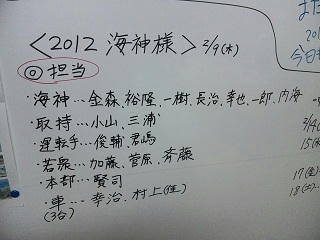 <2012 海神様> 2/9(木)
◎担当
・海神…金森、裕隆、一樹、長治、幸也、一郎、内海
・取持…小山、三浦
・運転手…俊輔、君嶋
・若衆…加藤、菅原、斉藤
・本部…賢司
・車…幸治、村上(佳)
(3台)
また
201
今日も
2/4(
15(水
17(金)
18(土)